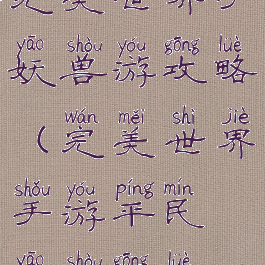 yāo shòu yóu gōng lüè
妖兽游攻略
wán měi shì jiè
（完美世界
shǒu yóu píng mín
手游平民
yāo shòu gōng lüè